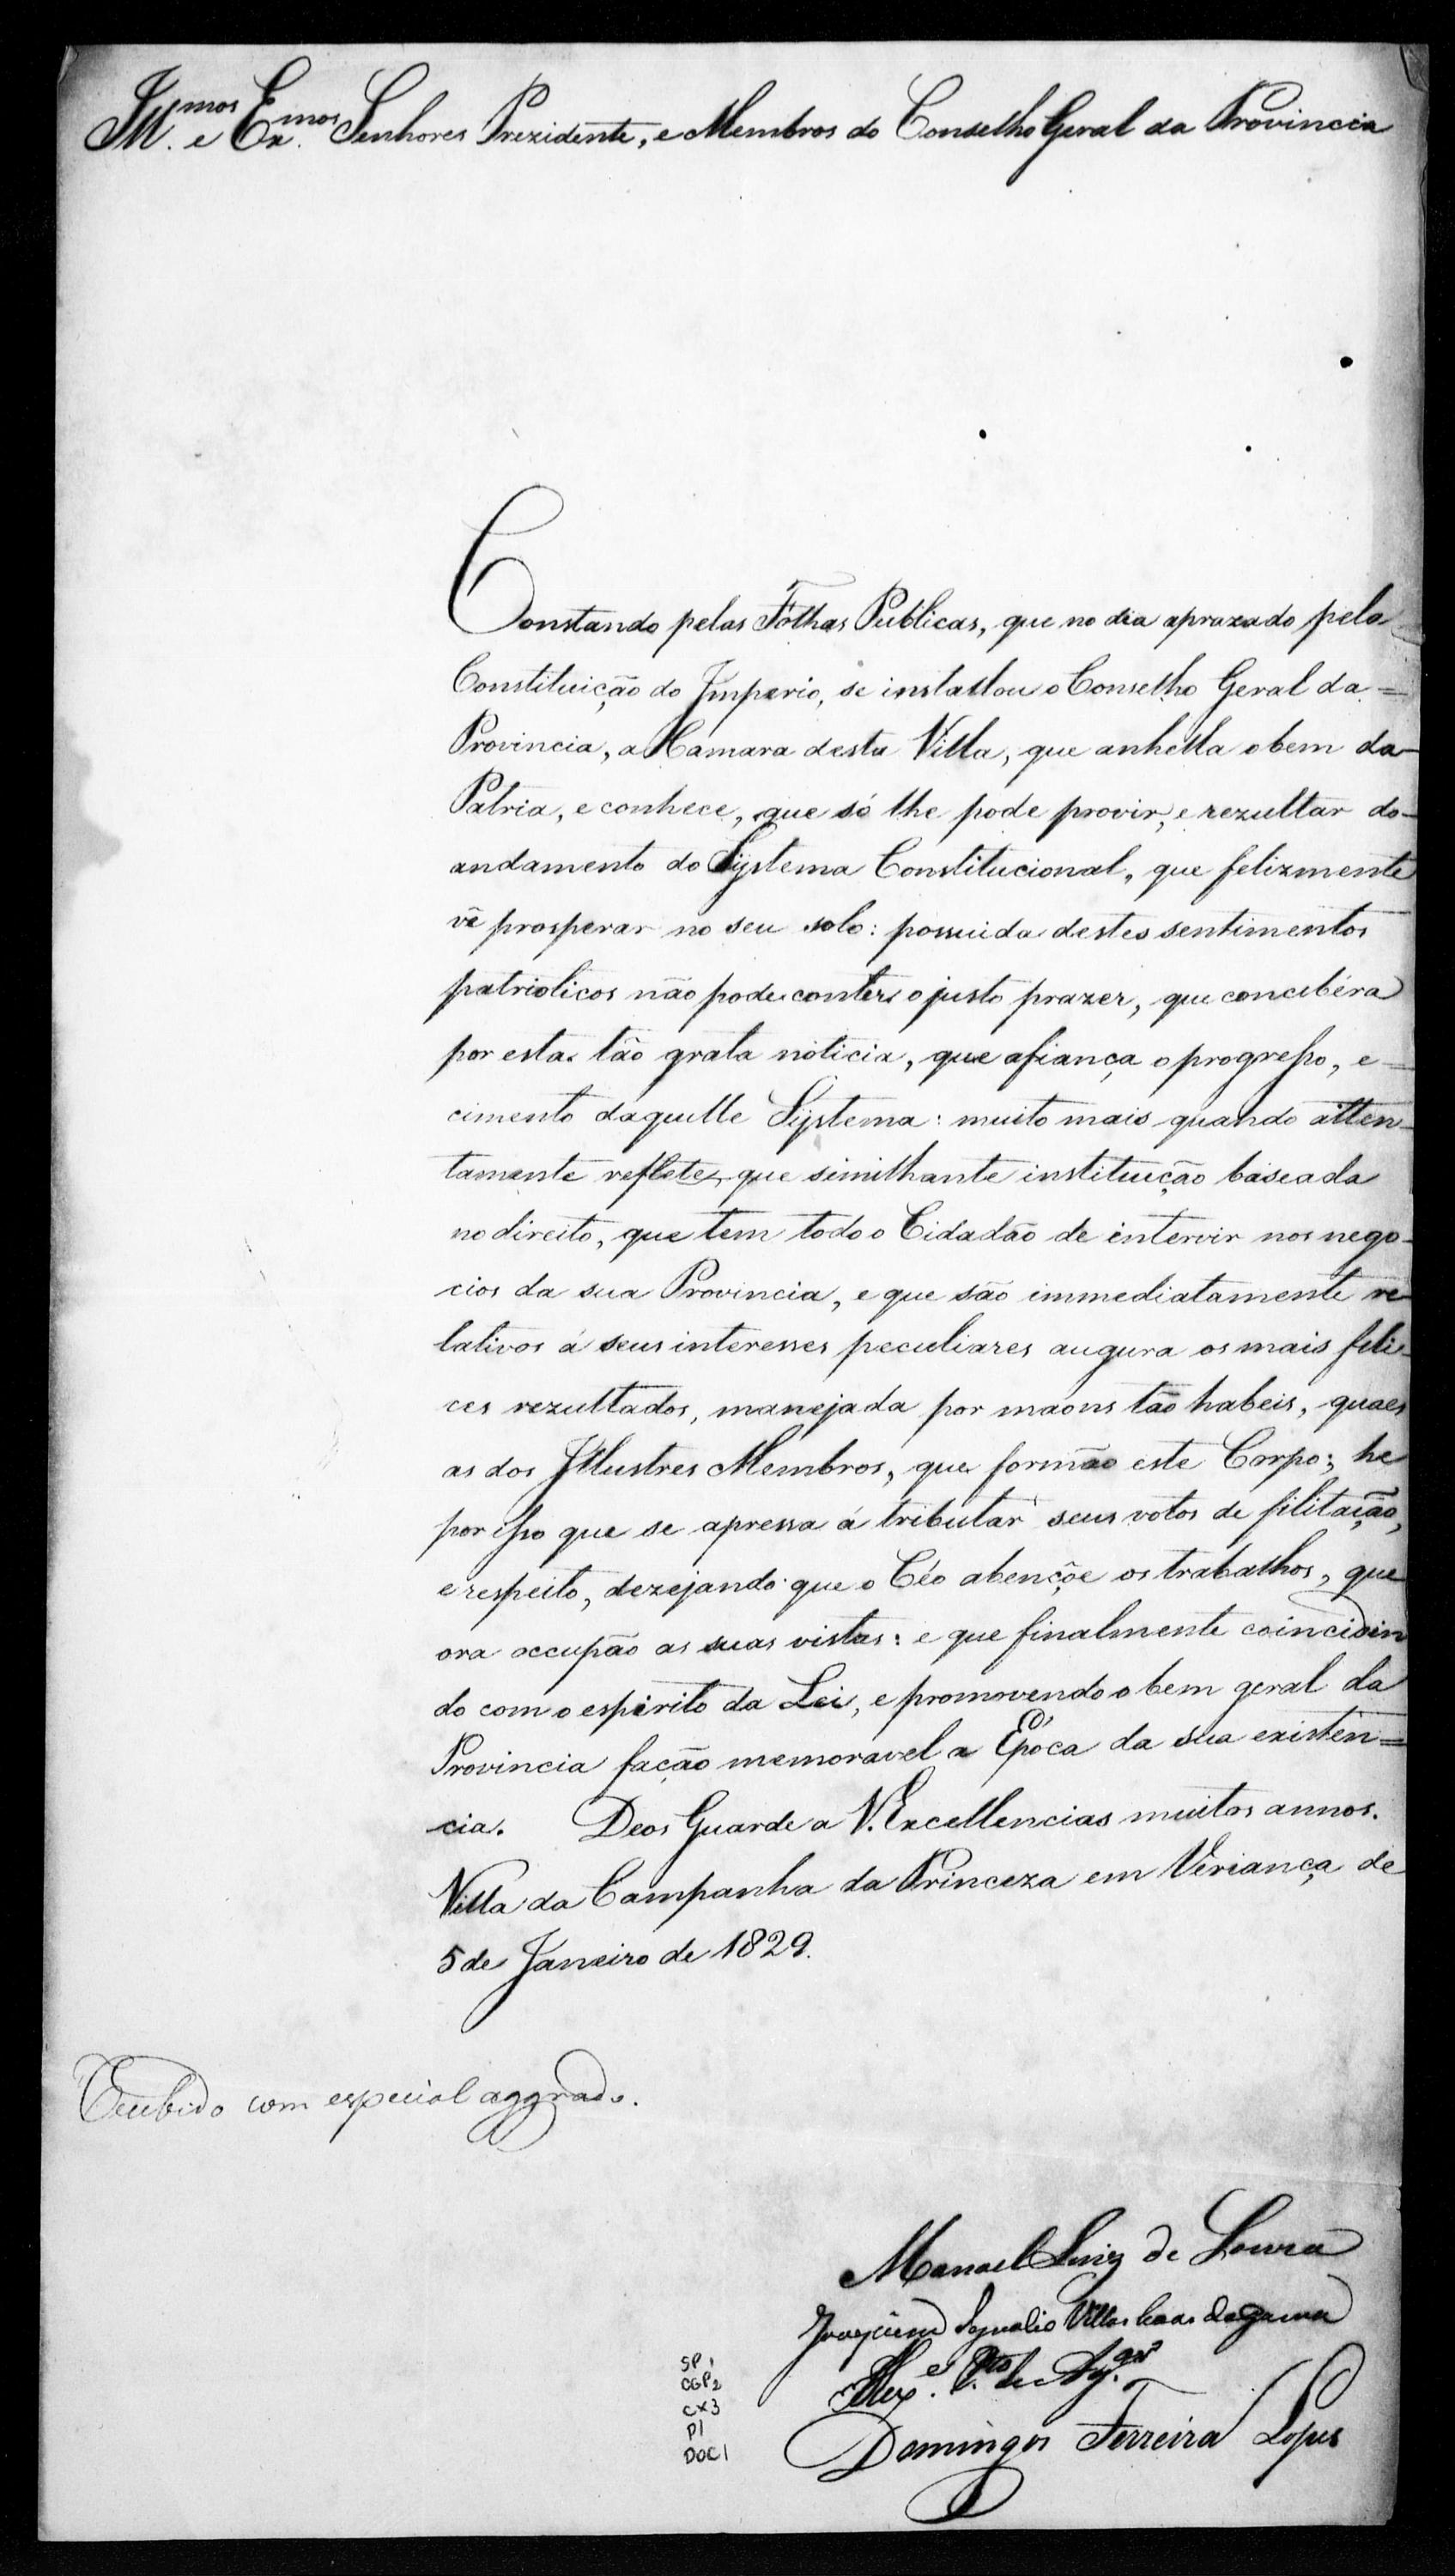 Ill.mos e Ex.mos Senhores Prezidente, e Membros do Conselho Geral da Provincia
Constando pelas Folhas Publicas, que no dia aprazado pela
Constituição do Imperio, se installou o Conselho Geral da =
Provincia, a Camara desta Villa, que anhella o bem da
Patria, e conhece, que só lhe pode provir, e rezultar do
andamento do Systema Constitucional, que felizmente
vê prosperar no seu solo: possuida destes sentimentos
patrioticos não pode conter o justo prazer, que concebêra
por esta tão grata noticia, que afiança o progresso, e =
cimento daquelle Systema: muito mais quando atten-
tamente reflete, que similhante instituição baseada
no direito, que tem todo o Cidadão de intervir nos nego-
cios da sua Provincia, e que são immediatamente re-
lativos á seus interesses peculiares augura os mais feli-
ces rezultados, manejada por maons tão habeis, quaes
as dos Illustres Membros, que formão este Corpo; he
por isso que se apressa á tributar seus votos de filitação,
e respeito, dezejando que o Céo abençõe os trabalhos, que
ora occupão as suas vistas: e que finalmente coincidin
do com o espirito da Lei, e promovendo o bem geral da
Provincia fação memoravel a Epóca da sua existen=
cia. Deos Guarde a V. Excellencias muitos annos.
Villa da Campanha da Princeza em Veriança de
5 de Janeiro de 1829.
Recebido com especial aggrado.
Manoel Luiz de Souza
Joaquim Ignacio Villas boas da Gama
Alex.e P.to de
Domingos Ferreira Lopes
SP 1
CGP2
CX3
P1
DOC1